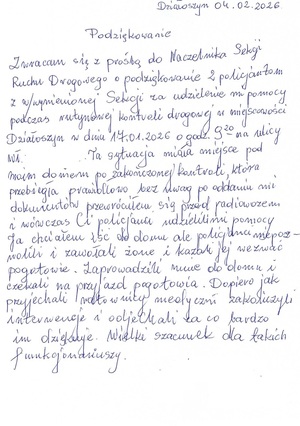 Działoszyn 04.02.2026
Podziękowanie
Zwracam się z prośbą do Naczelnika Sekcji
Ruchu Drogowego o podziękowanie 2 policjantom
z w/wymienionej Sekcji za udzielenie mi pomocy
podczas rutynowej kontroli drogowej w miejscowości
Działoszyn w dniu 17.01.2026 o godz. 9.20 na ulicy
Ta sytuacja miała miejsce pod
moim domem po zakończonej kontroli, która
przebiegła prawidłowo bez uwag po oddaniu mi
dokumentów przewróciłem się przed radiowozem
i wówczas Ci policjanci udzielili mi pomocy
Ja chciałem iść do domu ale policjanci niepoz-
wolili i zawołali żonę i kazali jej wezwać
pogotowie. Zaprowadzili mnie do domu i
czekali na przyjazd pogotowia. Dopiero jak
przyjechali ratownicy medyczni zakończyli
interwencje i odjechali za co bardzo
im dziękuje. Wielki szacunek dla takich
funkcjonariuszy.